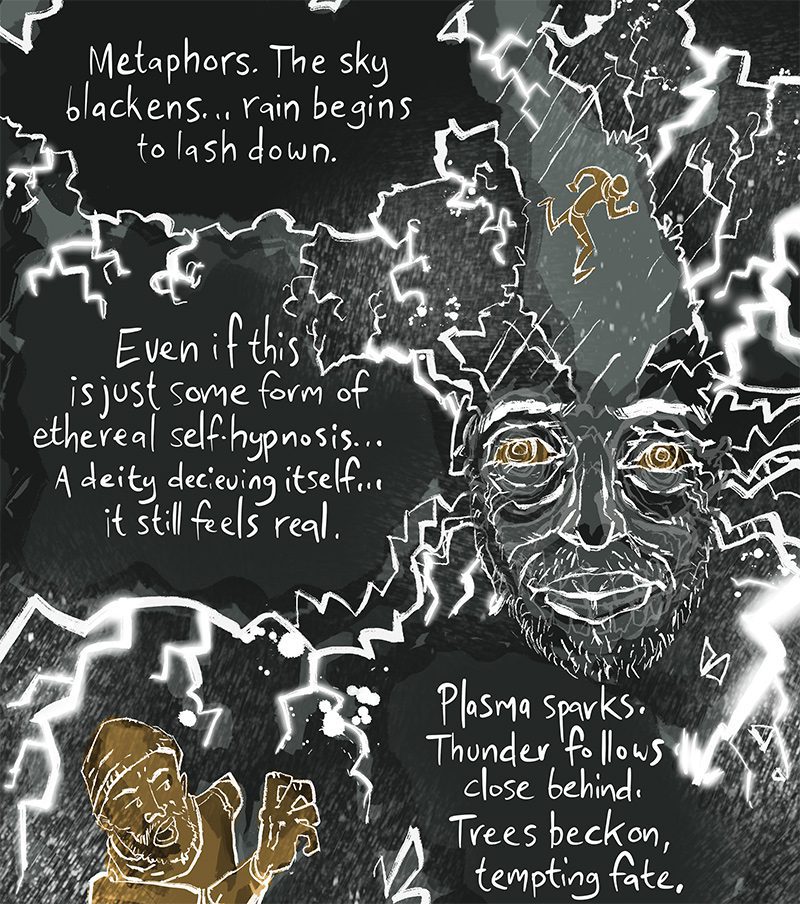 Metaphors. The sky
blackens... rain begins
to lash down.
Even if this
is just some form of
ethereal self-hypnosis...
A deity decieving itself...
it still feels real.
Plasma sparks.
Thunder follows
close behind.
Trees beckon,
tempting fate.